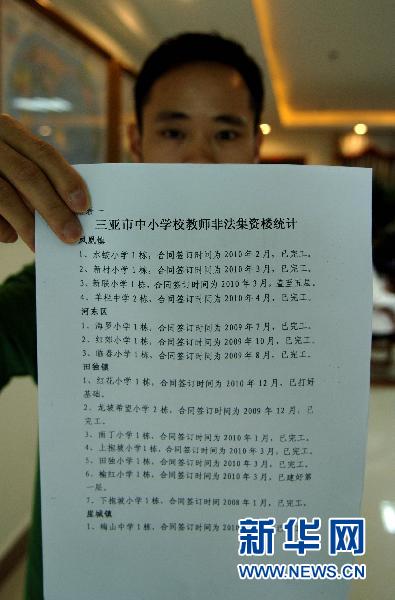 三亚市中小学校教师非法集资楼统计
凤凰镇
1、水蛟小学1栋，合同签订时间为2010年2月，已完工。
2、新村小学1栋，合同签订时间为2010年3月，已完工。
3、新联小学1栋，合同签订时间为2010年3月，盖至五层。
4、羊栏中学2栋，合同签订时间为2010年4月，已完工。
河东区
1、海罗小学1栋，合同签订时间为2009年7月，已完工。
2、红郊小学1栋，合同签订时间为2009年10月，已完工。
3、临春小学1栋，合同签订时间为2009年8月，已完工。
田独镇
1、红花小学1栋，合同签订时间为2010年12月，已打好
基础。
2、龙坡希望小学2栋，合同签订时间为2009年12月，已
完工。
3、南丁小学1栋，合同签订时间为2010年1月，已完工。
4、上抱坡小学1栋，合同签订时间为2010年3月，已完工。
5、田独小学1栋，合同签订时间为2010年3月，已完工。
6、榆红小学1栋，合同签订时间为2010年3月，已建好第
一层。
7、下抱坡小学1栋，合同签订时间2008年1月，已完工。
崖城镇
1、梅山中学1栋，合同签订时间为2010
新华网
WWW.NEWS.CN